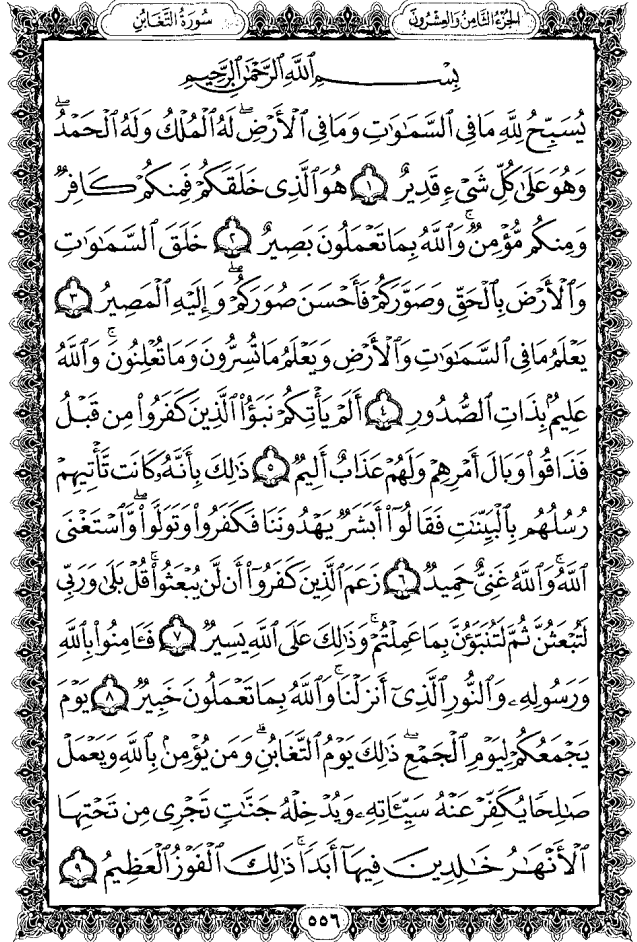 الجزء الثامن والعشرون
سورة التغابن
بِسْمِ اللَّهِ الرَّحْمَٰنِ الرَّحِيمِ
يُسَبِّحُ لِلَّهِ مَا فِي السَّمَاوَاتِ وَمَا فِي الْأَرْضِ ۖ لَهُ الْمُلْكُ وَلَهُ الْحَمْدُ ۖ
وَهُوَ عَلَىٰ كُلِّ شَيْءٍ قَدِيرٌ ١ هُوَ الَّذِي خَلَقَكُمْ فَمِنكُمْ كَافِرٌ
وَمِنكُم مُّؤْمِنٌ ۚ وَاللَّهُ بِمَا تَعْمَلُونَ بَصِيرٌ ٢ خَلَقَ السَّمَاوَاتِ
وَالْأَرْضَ بِالْحَقِّ وَصَوَّرَكُمْ فَأَحْسَنَ صُوَرَكُمْ ۖ وَإِلَيْهِ الْمَصِيرُ ٣
يَعْلَمُ مَا فِي السَّمَاوَاتِ وَالْأَرْضِ وَيَعْلَمُ مَا تُسِرُّونَ وَمَا تُعْلِنُونَ ۚ وَاللَّهُ
عَلِيمٌ بِذَاتِ الصُّدُورِ ٤ أَلَمْ يَأْتِكُمْ نَبَؤُا الَّذِينَ كَفَرُوا مِن قَبْلُ
فَذَاقُوا وَبَالَ أَمْرِهِمْ وَلَهُمْ عَذَابٌ أَلِيمٌ ٥ ذَٰلِكَ بِأَنَّهُ كَانَت تَّأْتِيهِمْ
رُسُلُهُم بِالْبَيِّنَاتِ فَقَالُوا أَبَشَرٌ يَهْدُونَنَا فَكَفَرُوا وَتَوَلَّوا ۖ وَّاسْتَغْنَى
اللَّهُ ۚ وَاللَّهُ غَنِيٌّ حَمِيدٌ ٦ زَعَمَ الَّذِينَ كَفَرُوا أَن لَّن يُبْعَثُوا ۚ قُلْ بَلَىٰ وَرَبِّي
لَتُبْعَثُنَّ ثُمَّ لَتُنَبَّؤُنَّ بِمَا عَمِلْتُمْ ۚ وَذَٰلِكَ عَلَى اللَّهِ يَسِيرٌ ٧ فَآمِنُوا بِاللَّهِ
وَرَسُولِهِ وَالنُّورِ الَّذِي أَنزَلْنَا ۚ وَاللَّهُ بِمَا تَعْمَلُونَ خَبِيرٌ ٨ يَوْمَ
يَجْمَعُكُمْ لِيَوْمِ الْجَمْعِ ۖ ذَٰلِكَ يَوْمُ التَّغَابُنِ ۗ وَمَن يُؤْمِن بِاللَّهِ وَيَعْمَلْ
صَالِحًا يُكَفِّرْ عَنْهُ سَيِّئَاتِهِ وَيُدْخِلْهُ جَنَّاتٍ تَجْرِي مِن تَحْتِهَا
الْأَنْهَارُ خَالِدِينَ فِيهَا أَبَدًا ۚ ذَٰلِكَ الْفَوْزُ الْعَظِيمُ ٩
٥٥٦